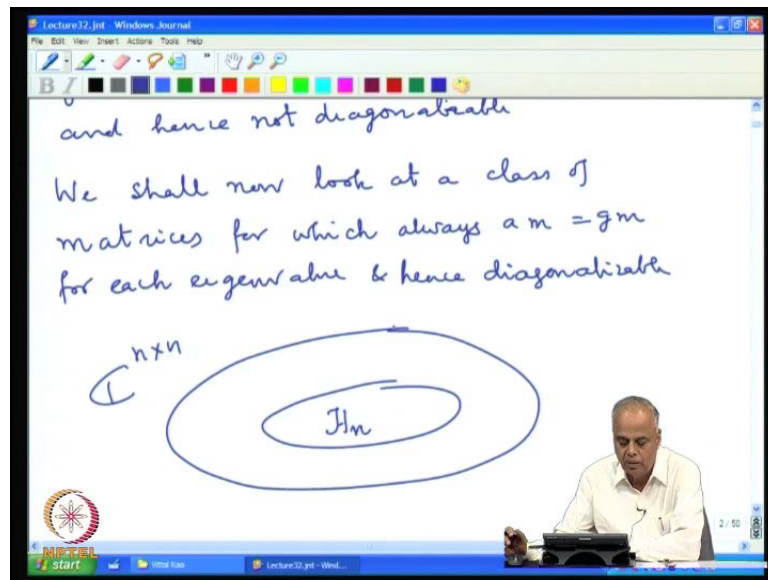 Lecture32.jnt - Windows Journal
File Edit View Insert Actions Tools Help
B I
and hence not diagonalizable
We shall now look at a class of
matrices for which always am = gm
for each eigenvalue & hence diagonalizable
ℂⁿˣⁿ
Hn
2 / 50
NPTEL
start Vittal Rao Lecture32.jnt - Wind...